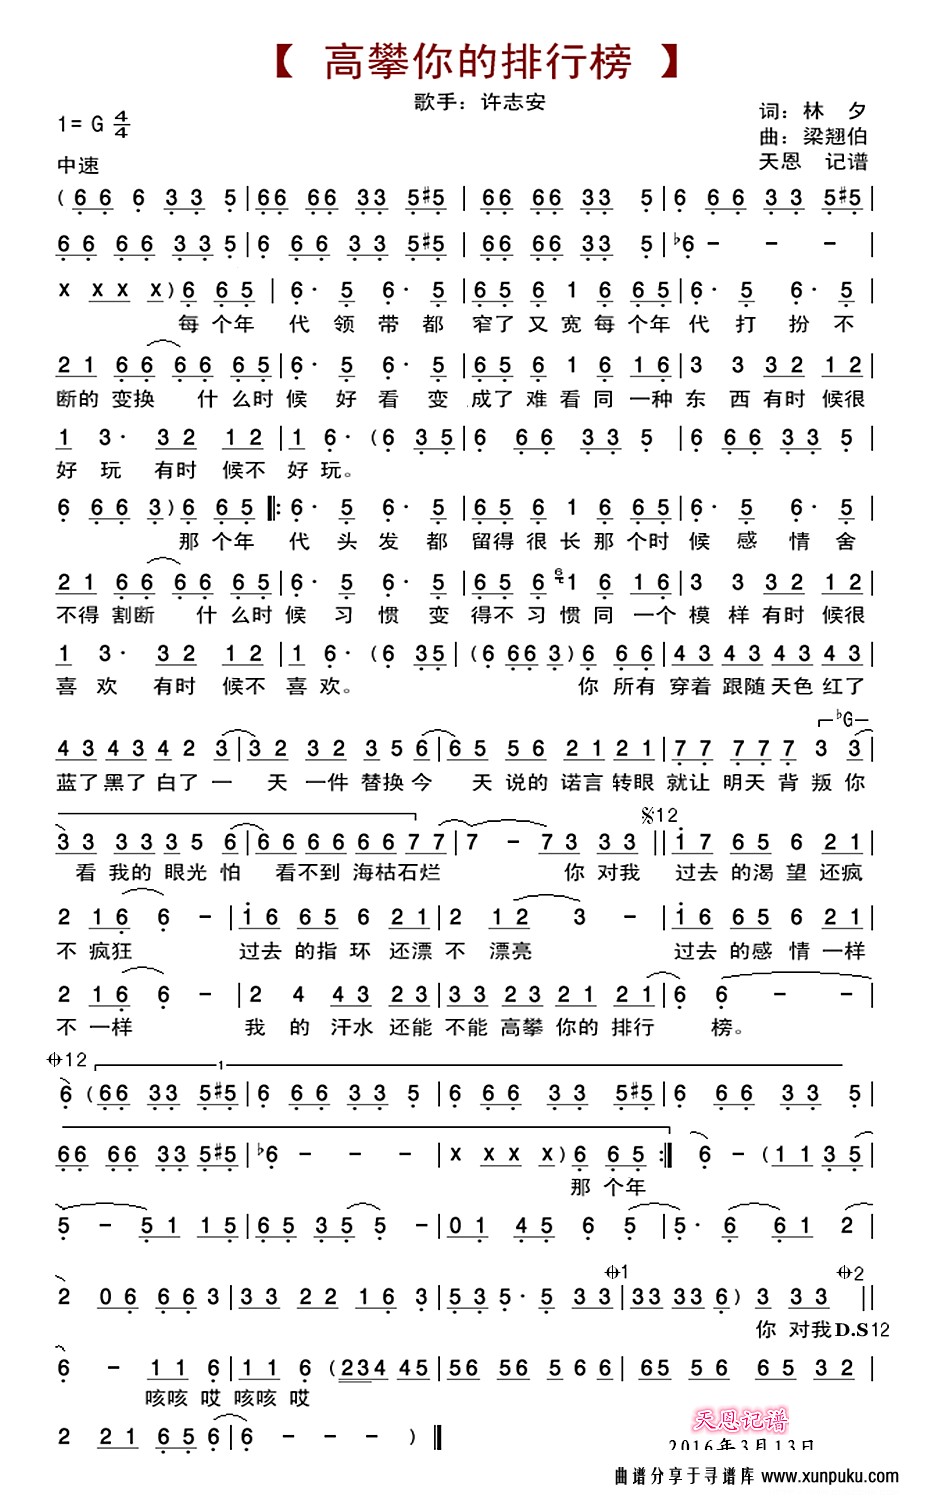 【 高攀你的排行榜 】
歌手：许志安
1= G 4/4
词：林 夕
曲：梁翘伯
中速
天恩 记谱
( 6 6 6 3 3 5 | 66 66 33 5#5 | 66 66 33 5 | 6 6 6 3 3 5#5 |
6 6 6 6 3 3 5 | 6 6 6 3 3 5#5 | 66 66 33 5 | b6 - - - |
x x x x ) 6 6 5 | 6· 5 6· 5 | 6 5 6 1 6 6 5 | 6· 5 6· 5 |
每 个年 代 领 带 都 窄了 又 宽 每 个年 代 打 扮 不
2 1 6 6 6 6 6 5 | 6· 5 6· 5 | 6 5 6 1 6 1 6 | 3 3 3 2 1 2 |
断的 变换 什 么时 候 好 看 变 成了 难 看 同 一种 东 西 有时 候很
1 3· 3 2 1 2 | 1 6· ( 6 3 5 | 6 6 6 3 3 5 | 6 6 6 3 3 5 |
好 玩 有时 候不 好 玩。
6 6 6 3 ) 6 6 5 |: 6· 5 6· 5 | 6 5 6 1 6 6 5 | 6· 5 6· 5 |
那 个年 代 头 发 都 留得 很 长 那 个时 候 感 情 舍
2 1 6 6 6 6 6 5 | 6· 5 6· 5 | 6 5 6 6 1 6 1 6 | 3 3 3 2 1 2 |
不得 割断 什 么时 候 习 惯 变 得不 习 惯 同 一个 模 样 有时 候很
1 3· 3 2 1 2 | 1 6· ( 6 3 5 | ( 6 6 6 3 ) 6 6 6 | 4 3 4 3 4 3 4 3 |
喜 欢 有时 候不 喜 欢。 你 所有 穿着 跟随 天色 红了
bG
4 3 4 3 4 2 3 | 3 2 3 2 3 5 6 | 6 5 5 6 2 1 2 1 | 7 7 7 7 7 3 3 |
蓝了 黑了 白了 一 天 一件 替换 今 天 说的 诺言 转眼 就让 明天 背 叛 你
𝄋12
3 3 3 3 3 5 6 | 6 6 6 6 6 6 7 7 | 7 - 7 3 3 3 || i 7 6 5 6 2 1 |
看 我的 眼光 怕 看不到 海枯石烂 你 对我 过去 的渴 望 还疯
2 1 6 6 - | i 6 6 5 6 2 1 | 2 1 2 3 - | i 6 6 5 6 2 1 |
不 疯狂 过去 的指 环 还漂 不 漂亮 过去 的感 情 一样
2 1 6 6 - | 2 4 4 3 2 2 | 3 3 2 2 2 1 2 1 | 6 6 - - |
不 一样 我 的 汗水 还能 不能 高攀 你的 排行 榜。
𝄌12 1
6 ( 6 6 3 3 5#5 | 6 6 6 3 3 5 | 6 6 6 3 3 5#5 | 6 6 6 3 3 5 |
66 66 33 5#5 | b6 - - - | x x x x ) 6 6 5 :| 6 - ( 1 1 3 5 |
那 个年
5 - 5 1 1 5 | 6 5 3 5 5 - | 0 1 4 5 6 5 | 5· 6 6 1 2 |
𝄌1 𝄌2
2 0 6 6 6 3 | 3 3 2 2 1 6 3 | 5 3 5· 5 3 3 | 33 33 6 ) 3 3 3 ||
你 对我 D.S 12
6 - 1 1 6 | 1 1 6 ( 234 45 | 56 56 5 6 6 | 65 56 65 3 2 |
咳咳 哎 咳咳 哎
2 2 1 6 5 6 | 6 - - - ) ‖
天恩记谱
2016年3月13日
曲谱分享于寻谱库 www.xunpuku.com